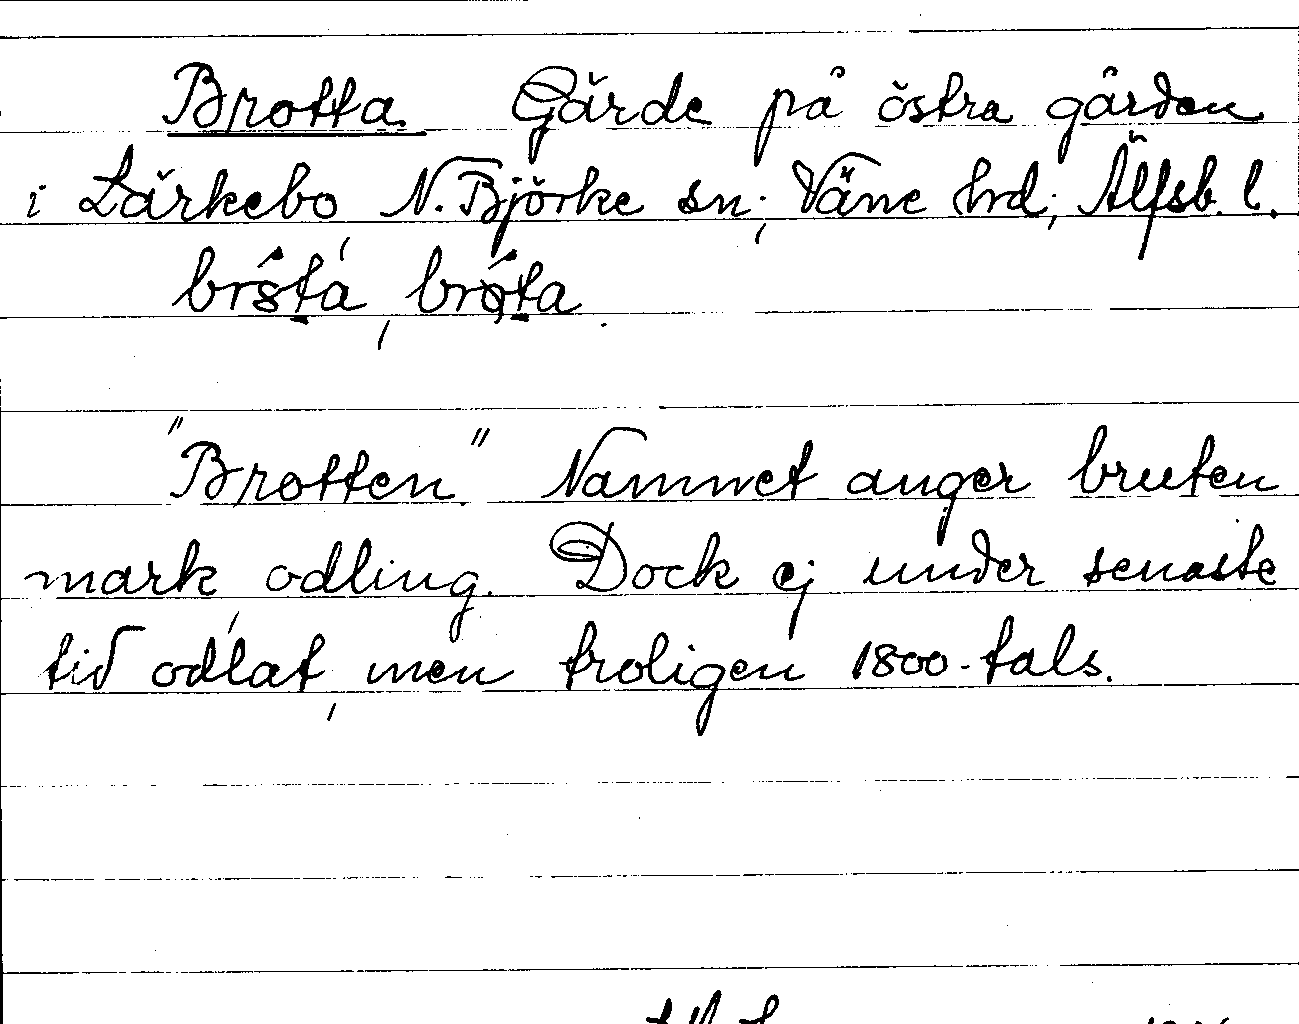 Brotta. Gärde på östra gården
i Lärkebo, N. Björke sn; Väne hrd; Älfsb. l.
"Brotten." Namnet anger bruten
mark, odling. Dock ej under senaste
tid odlat, men troligen 1800-tals.